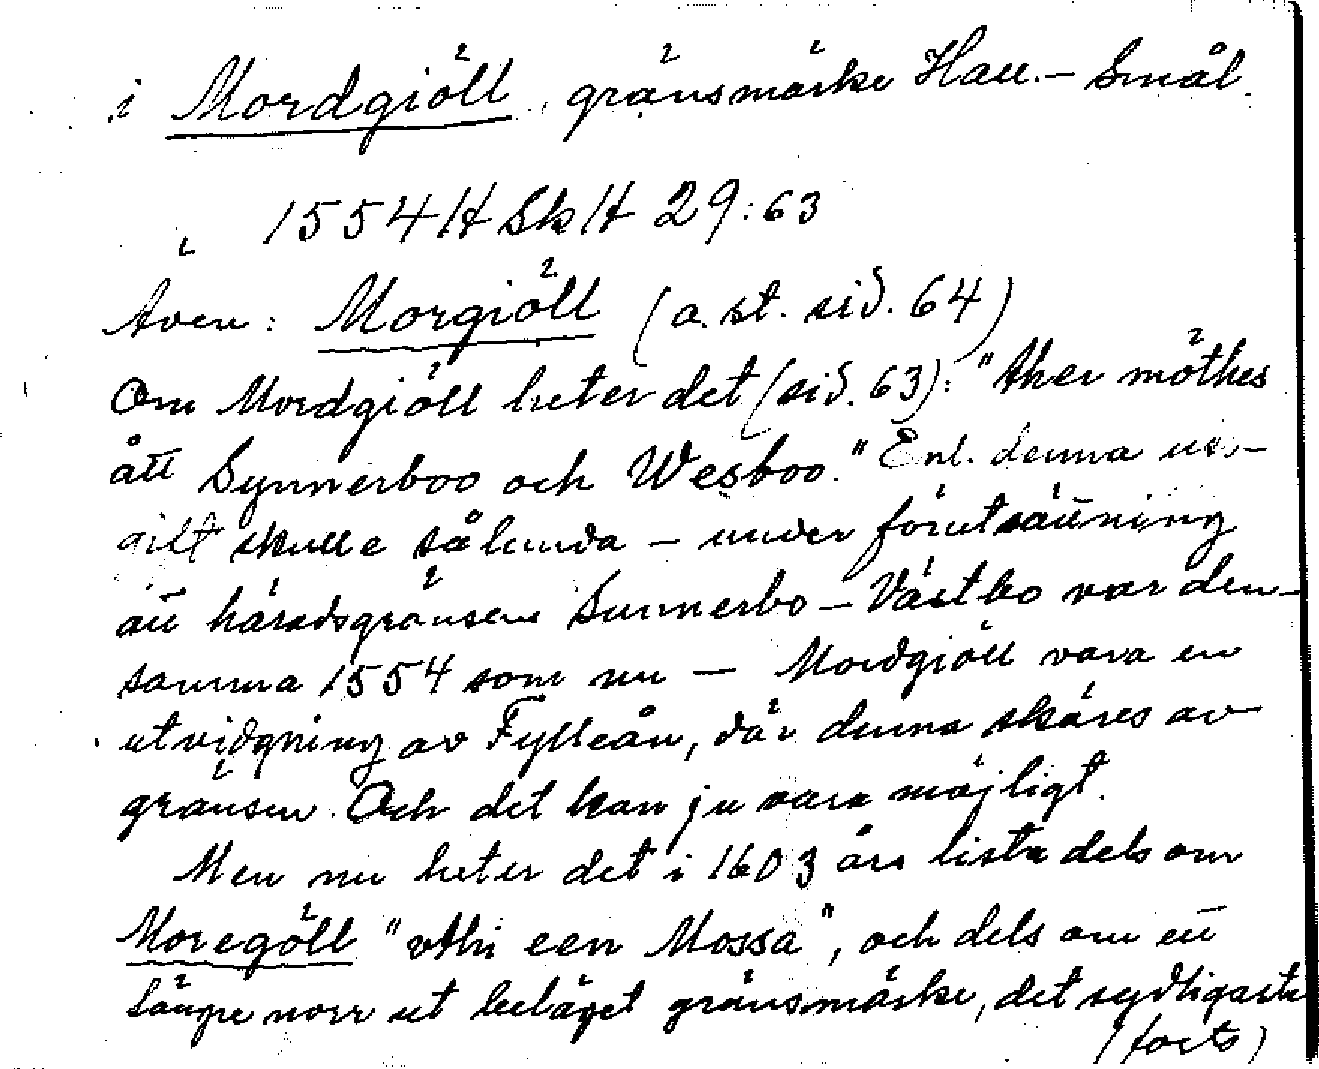 i Mordgiöll, gränsmärke Hall.- Smål.
i 1554 H Sk H 29:63
Även: Morgiöll (a. st. sid. 64)
Om Mordgiöll heter det (sid. 63): "ther möthes
ått Synnerboo och Wesboo." Enl. denna upp-
gift skulle sålunda – under förutsättning
att häradsgränsen Sunnerbo – Västbo var den-
samma 1554 som nu – Mordgiöll vara en
utvidgning av Fylleån, där denna skäres av
gränsen. Och det kan ju vara möjligt.
Men nu heter det i 1603 års lista dels om
Moregöll "vthi een Mossa", och dels om ett
längre norr ut beläget gränsmärke, det sydligaste
(forts)